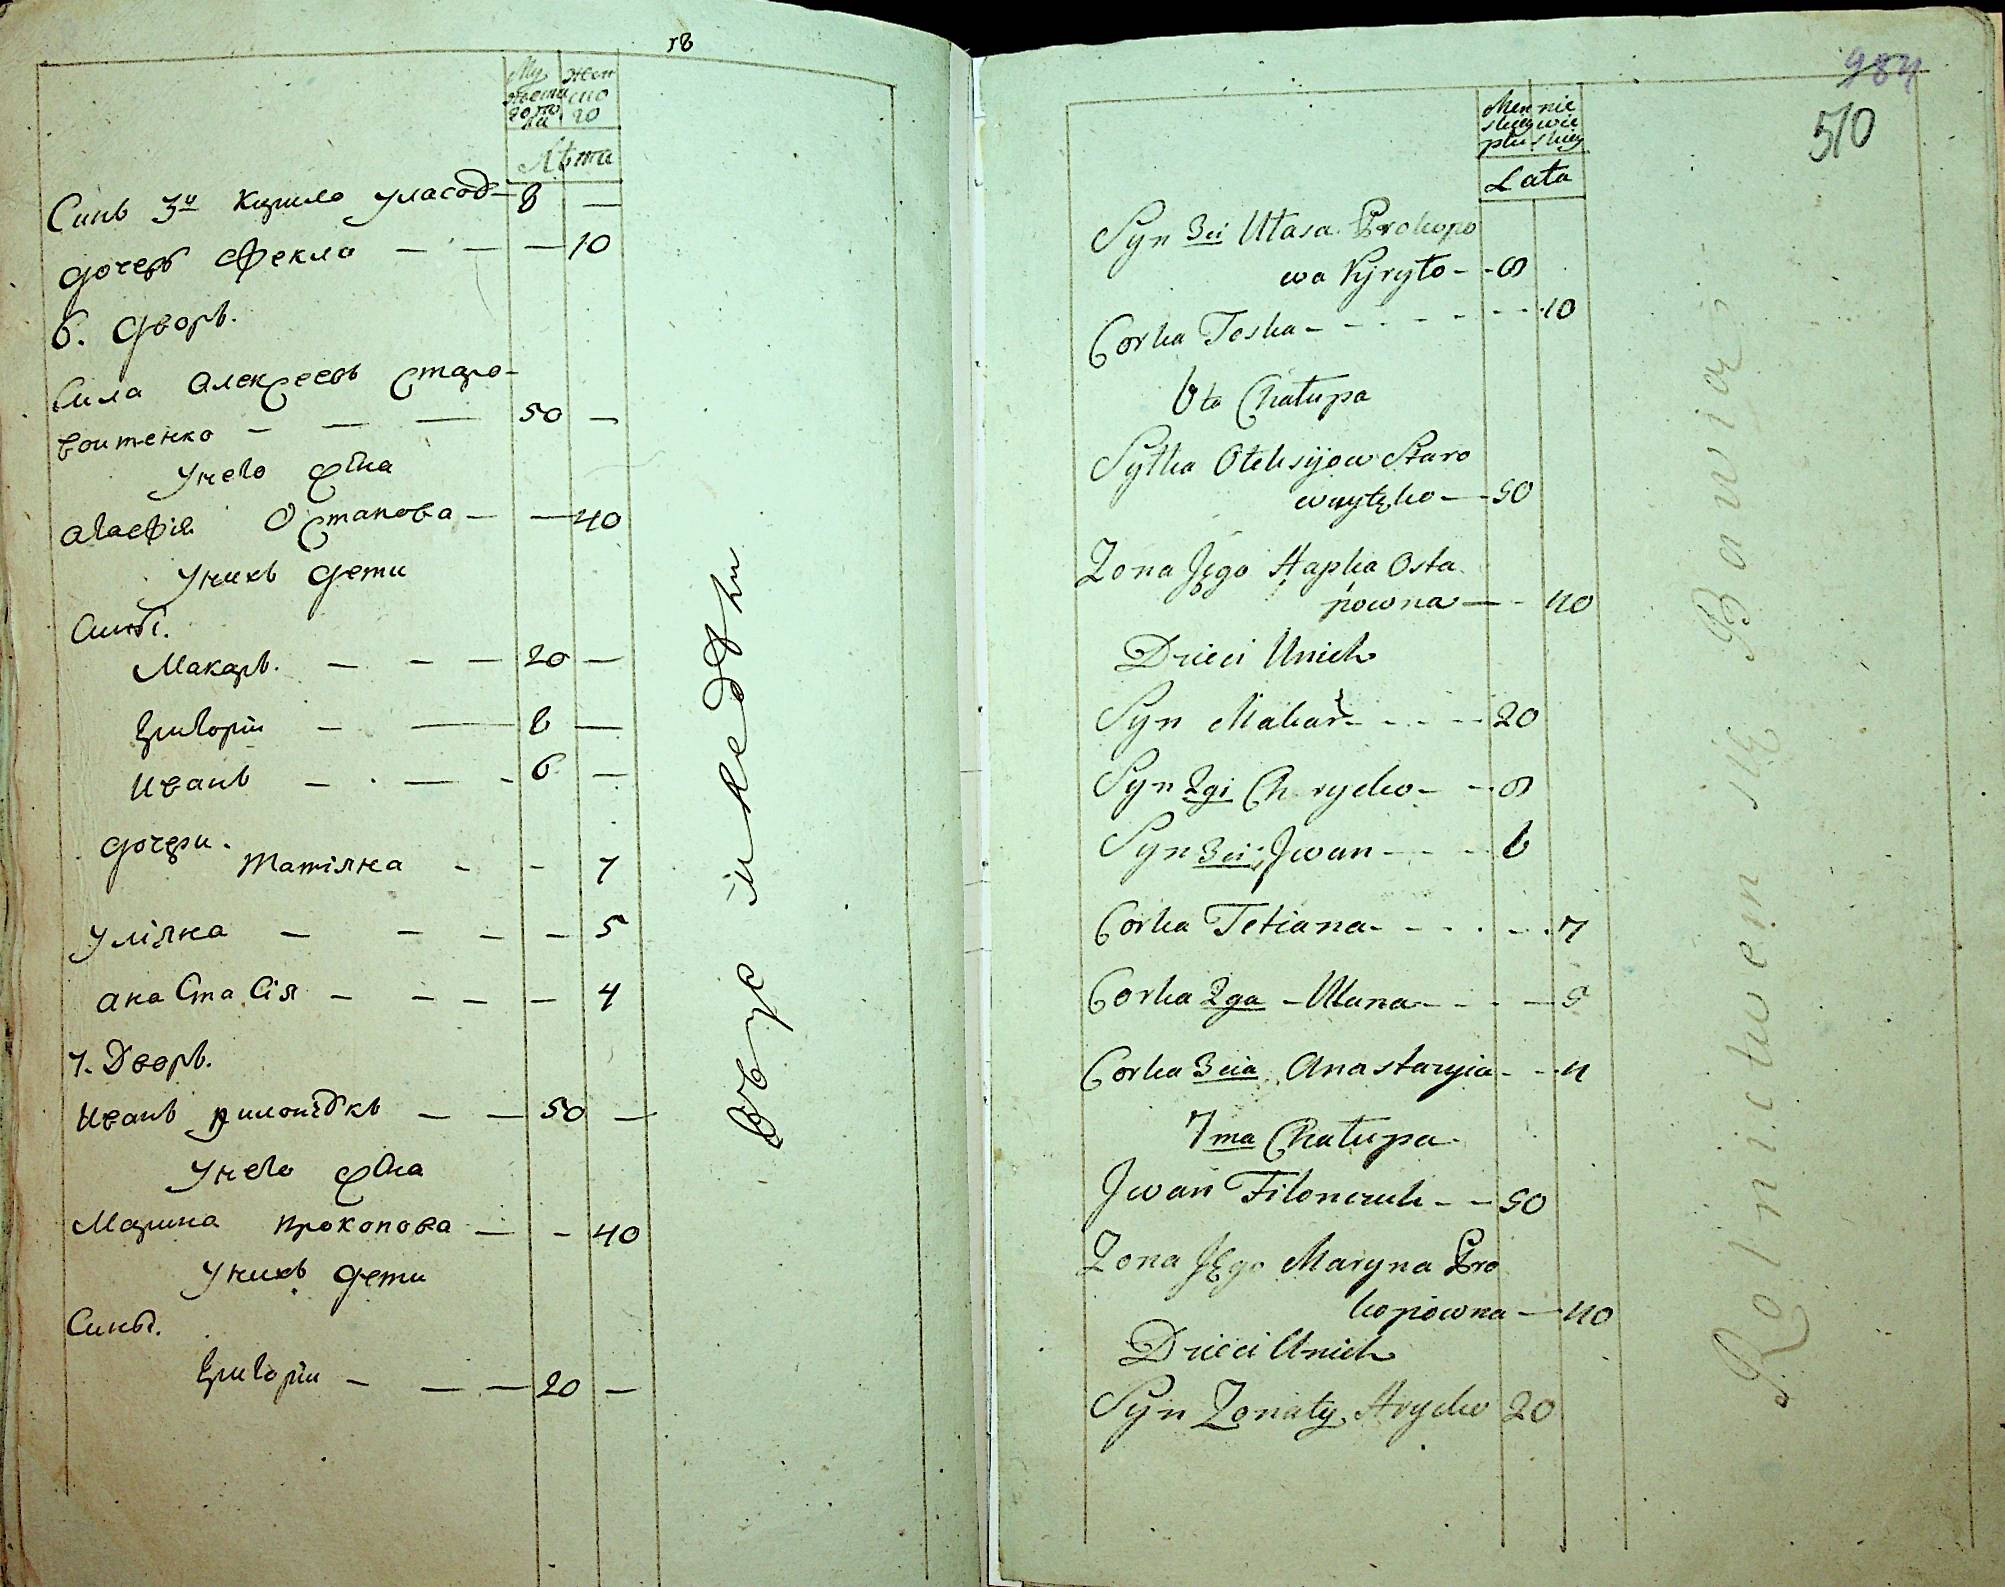 18
Му
жеска
го по
ла
жен
ско
го
Лѣта
Синъ 3й Кирило Уласов — 8 —
дочерь Фекла — — — 10
6. дворъ.
Сила Алексеевъ Старо-
войтенко — — — 50 —
У него жена
Агафія Остапова — — 40
У нихъ дети
Сины.
Макаръ. — — — 20 —
Григорій — — 8 —
Иванъ — . — - 6 —
дочери.
Татіяна - - 7
Уліяна — — — — 5
анаСтаСія — — — — 4
7. Дворъ.
Иванъ — — 50 —
У него жена
Марина Прокопова — - 40
У нихъ дети
Сины.
Григорій — — — 20 —
984
510
Męz
skiey
płu
nie
wie
skiey
Lata
Syn 3ci Ułasa Prokopo
wa Kyryło - - 8
Corka Teska - - - - - - - - 10
6ta Chałupa
Syłka Ołeksijow Staro
woytęko — 50
Zona Jęgo Hapka Osta
powna — - 40
Dzieci Unich
Syn Makar - - - - 20
Syn 2gi Hryćko - - 8
Syn 3ci Jwan - - - 6
Corka Tetiana - - - - - - 7
Corka 2ga - Ulana - - - — 5
Corka 3cia Anastazyia - - 4
7ma Chałupa
Jwan Filonczuk - - 50
Zona Jęgo Maryna Pro
kopiowna — 40
Dzieci Unich
Syn Zonaty Hryćko 20
Rolnictwem się Bawią